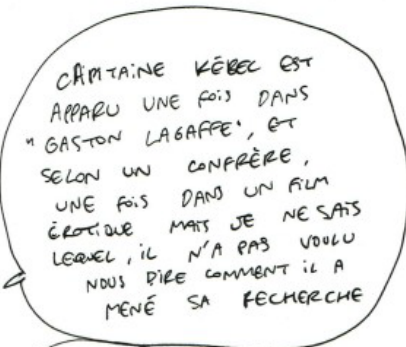 CAPITAINE KÉBEC EST
APPARU UNE FOIS DANS
"GASTON LAGAFFE", ET
SELON UN CONFRÈRE,
UNE FOIS DANS UN FILM
ÉROTIQUE MAIS JE NE SAIS
LEQUEL, IL N'A PAS VOULU
NOUS DIRE COMMENT IL A
MENÉ SA RECHERCHE